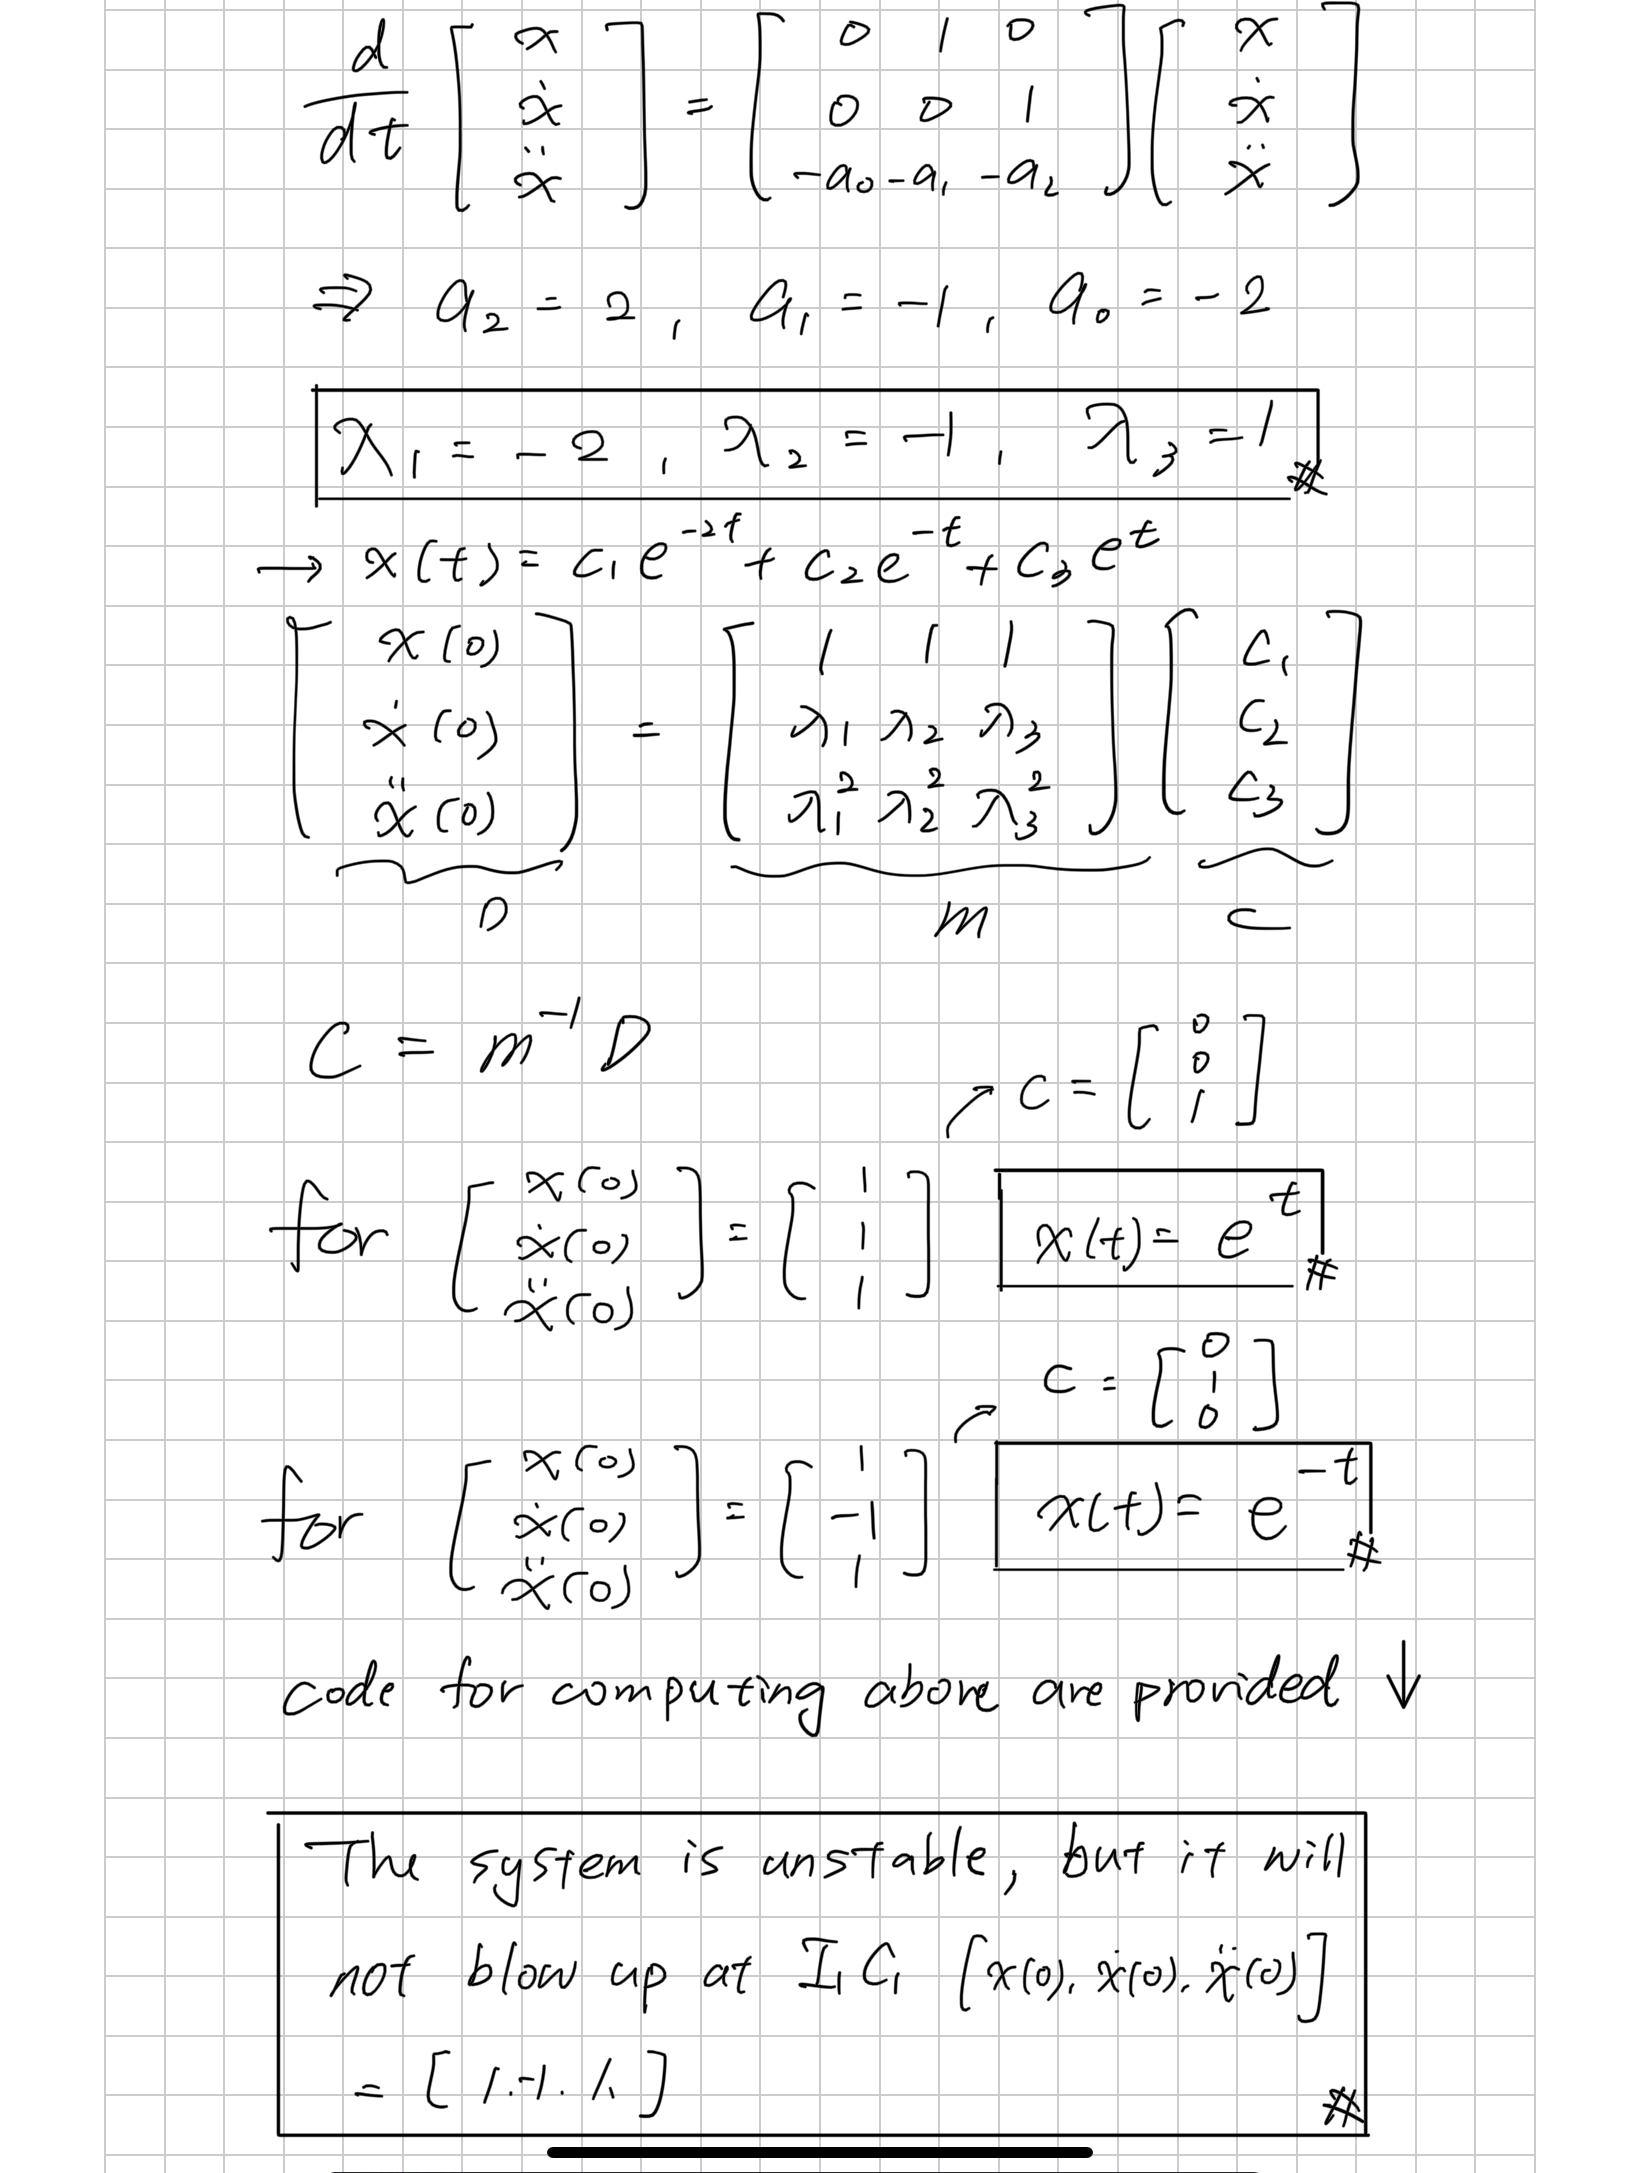 d/dt [x ẋ ẍ] = [0 1 0; 0 0 1; -a₀ -a₁ -a₂] [x ẋ ẍ]
⇒ a₂ = 2, a₁ = -1, a₀ = -2
λ₁ = -2, λ₂ = -1, λ₃ = 1 #
→ x(t) = c₁e^{-2t} + c₂e^{-t} + c₃e^{t}
[x(0) ẋ(0) ẍ(0)] = [1 1 1; λ₁ λ₂ λ₃; λ₁² λ₂² λ₃²] [c₁ c₂ c₃]
D m C
C = m⁻¹ D
C = [0 0 1]
for [x(0) ẋ(0) ẍ(0)] = [1 1 1] x(t) = e^{t} #
C = [0 1 0]
for [x(0) ẋ(0) ẍ(0)] = [1 -1 1] x(t) = e^{-t} #
code for computing above are provided ↓
The system is unstable, but it will
not blow up at I.C. [x(0). ẋ(0). ẍ(0)]
= [1.-1.1.] #